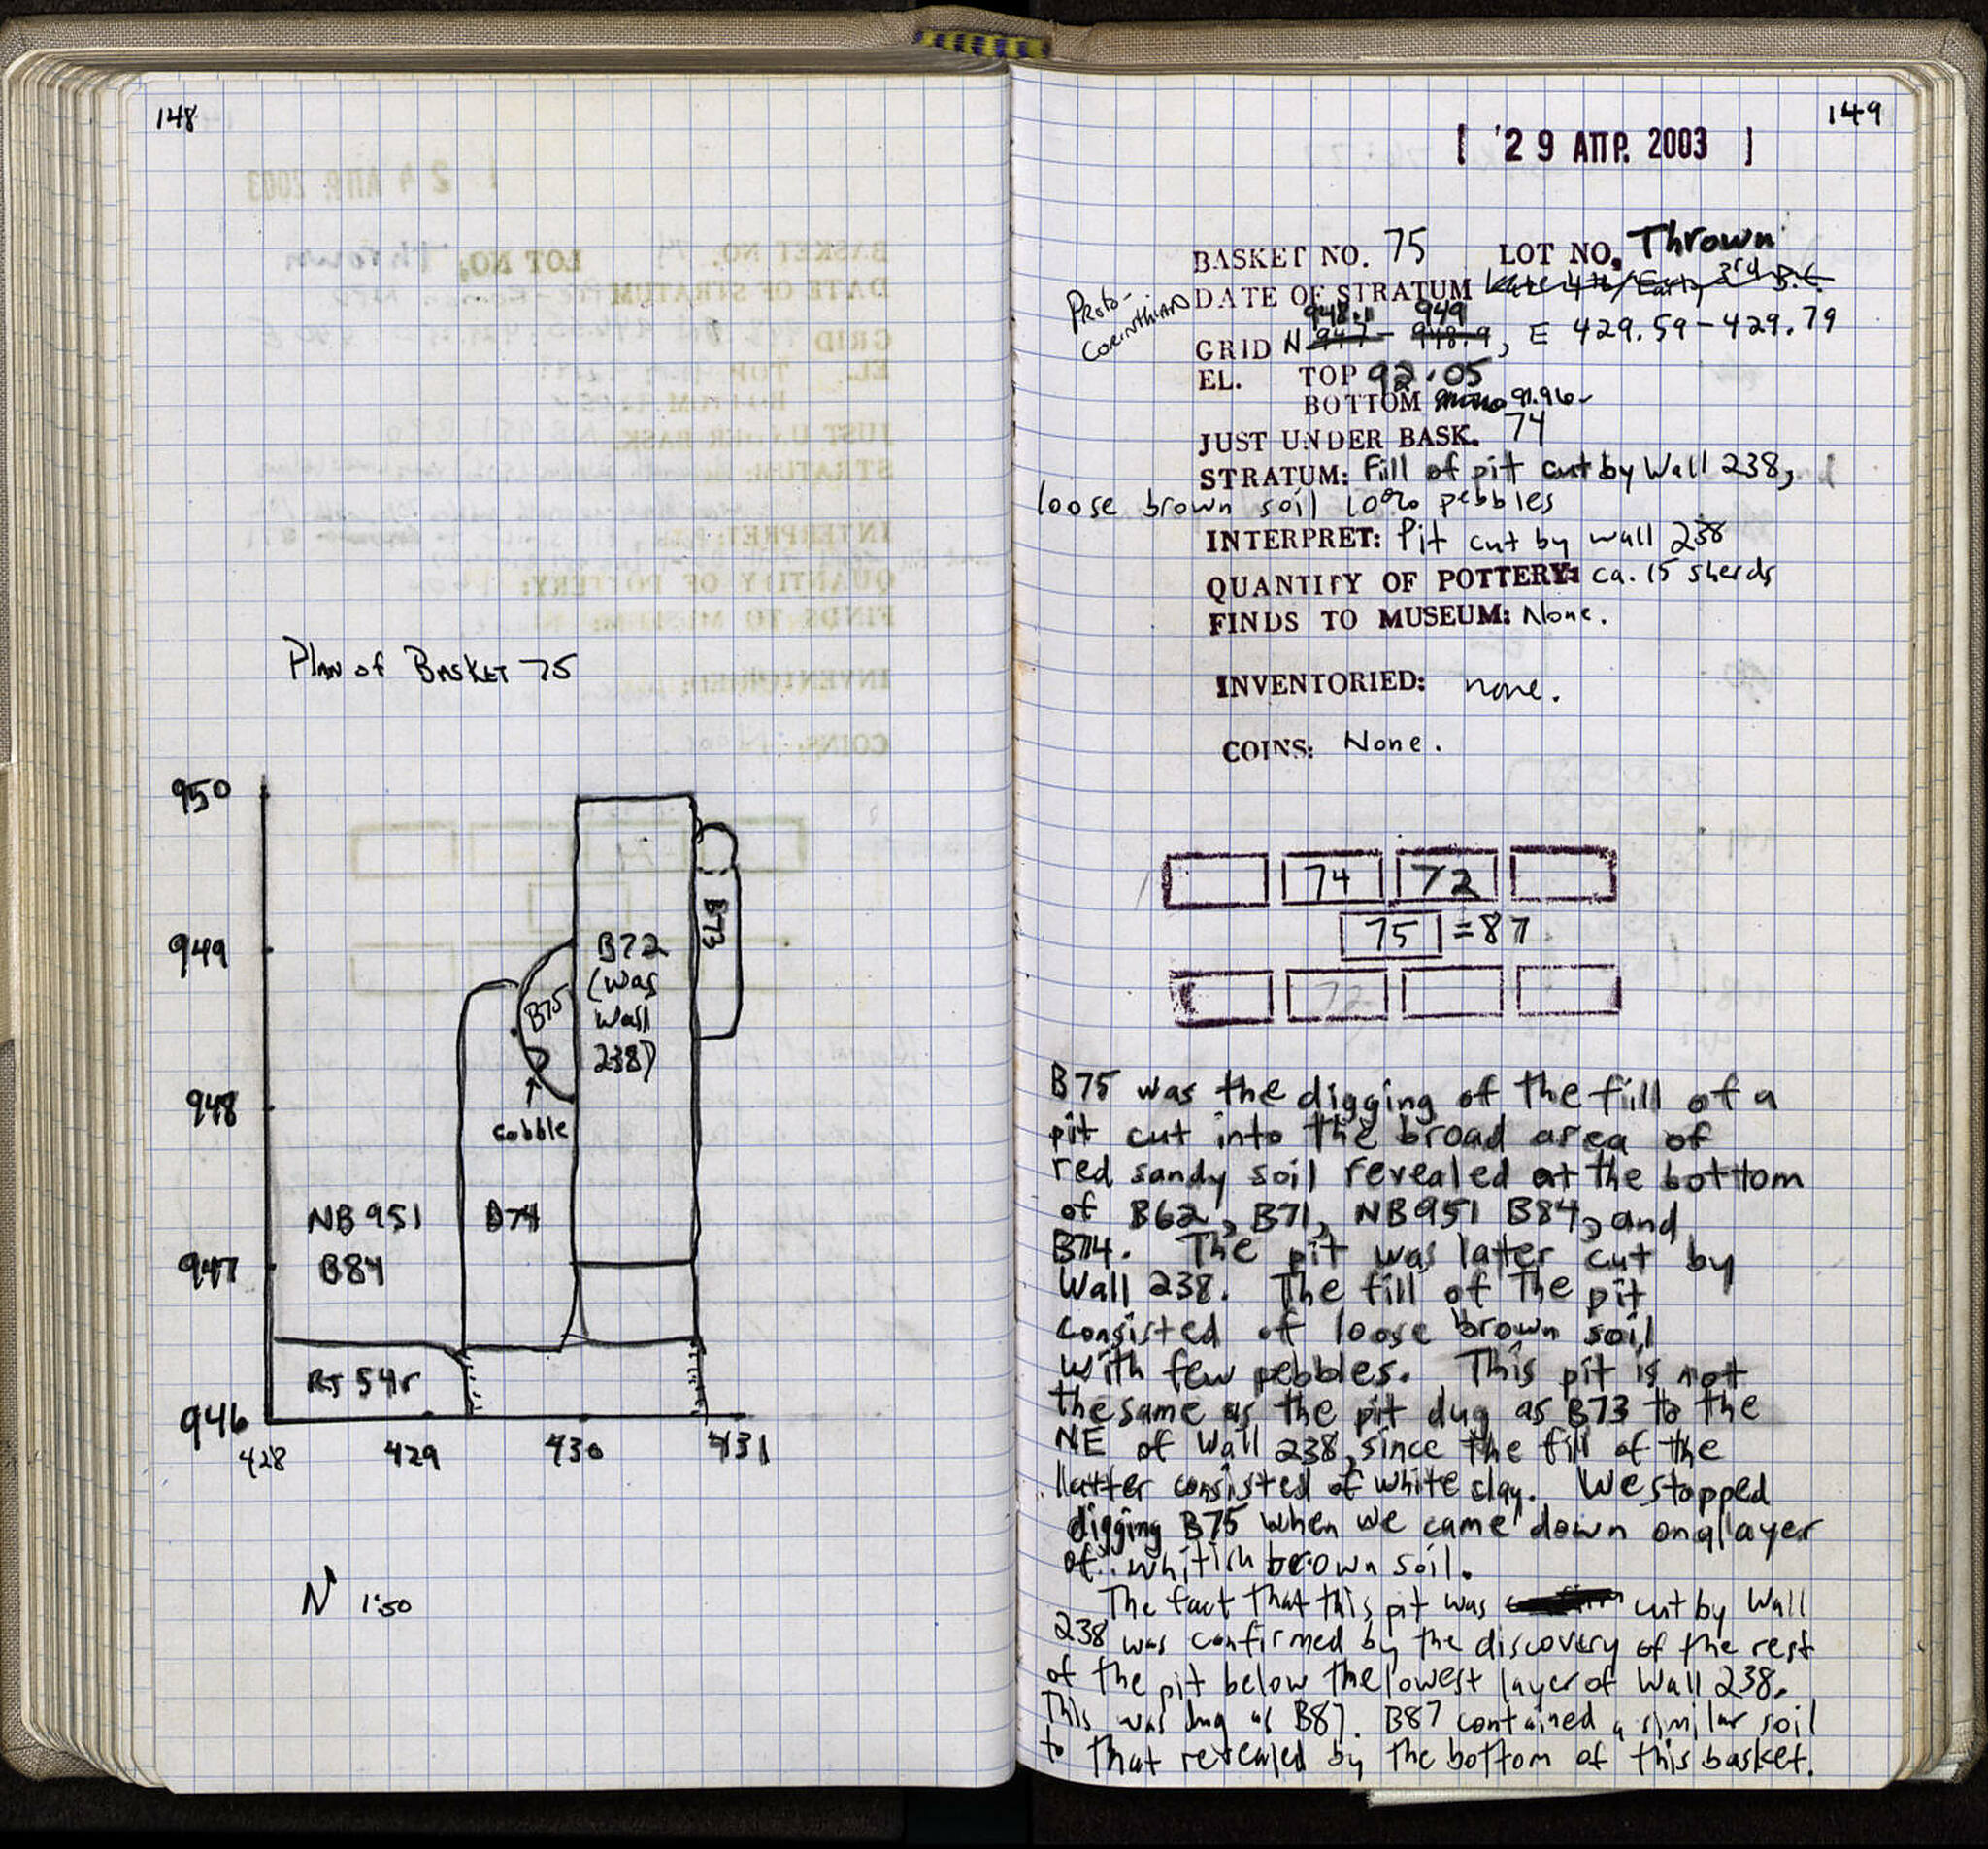 148
Plan of Basket 75
950
949
948
947
946
428 429 430 431
B72
(was
wall
238)
B73
B75
cobble
NB 951
B84
B74
N 1:50
149
[ '29 ΑΠΡ. 2003 ]
BASKET NO. 75 LOT NO. Thrown
Proto-
Corinthian
DATE OF STRATUM Late 4th/Early 3rd B.C.
948.1 949
GRID N 947 - 948.9, E 429.59-429.79
EL. TOP 92.05
BOTTOM 91.96
JUST UNDER BASK. 74
STRATUM: Fill of pit cut by Wall 238,
loose brown soil 10% pebbles
INTERPRET: Pit cut by wall 238
QUANTITY OF POTTERY: ca. 15 sherds
FINDS TO MUSEUM: None.
INVENTORIED: none.
COINS: None.
74 72
75 = 87
72
B75 was the digging of the fill of a
pit cut into the broad area of
red sandy soil revealed at the bottom
of B62, B71, NB951 B84, and
B74. The pit was latter cut by
Wall 238. The fill of the pit
consisted of loose brown soil
with few pebbles. This pit is not
the same as the pit dug as B73 to the
NE of Wall 238, since the fill of the
latter consisted of white clay. We stopped
digging B75 when we came down on a layer
of whitish brown soil.
The fact that this pit was cut by Wall
238 was confirmed by the discovery of the rest
of the pit below the lowest layer of Wall 238.
This was dug as B87. B87 contained a similar soil
to that revealed by the bottom of this basket.